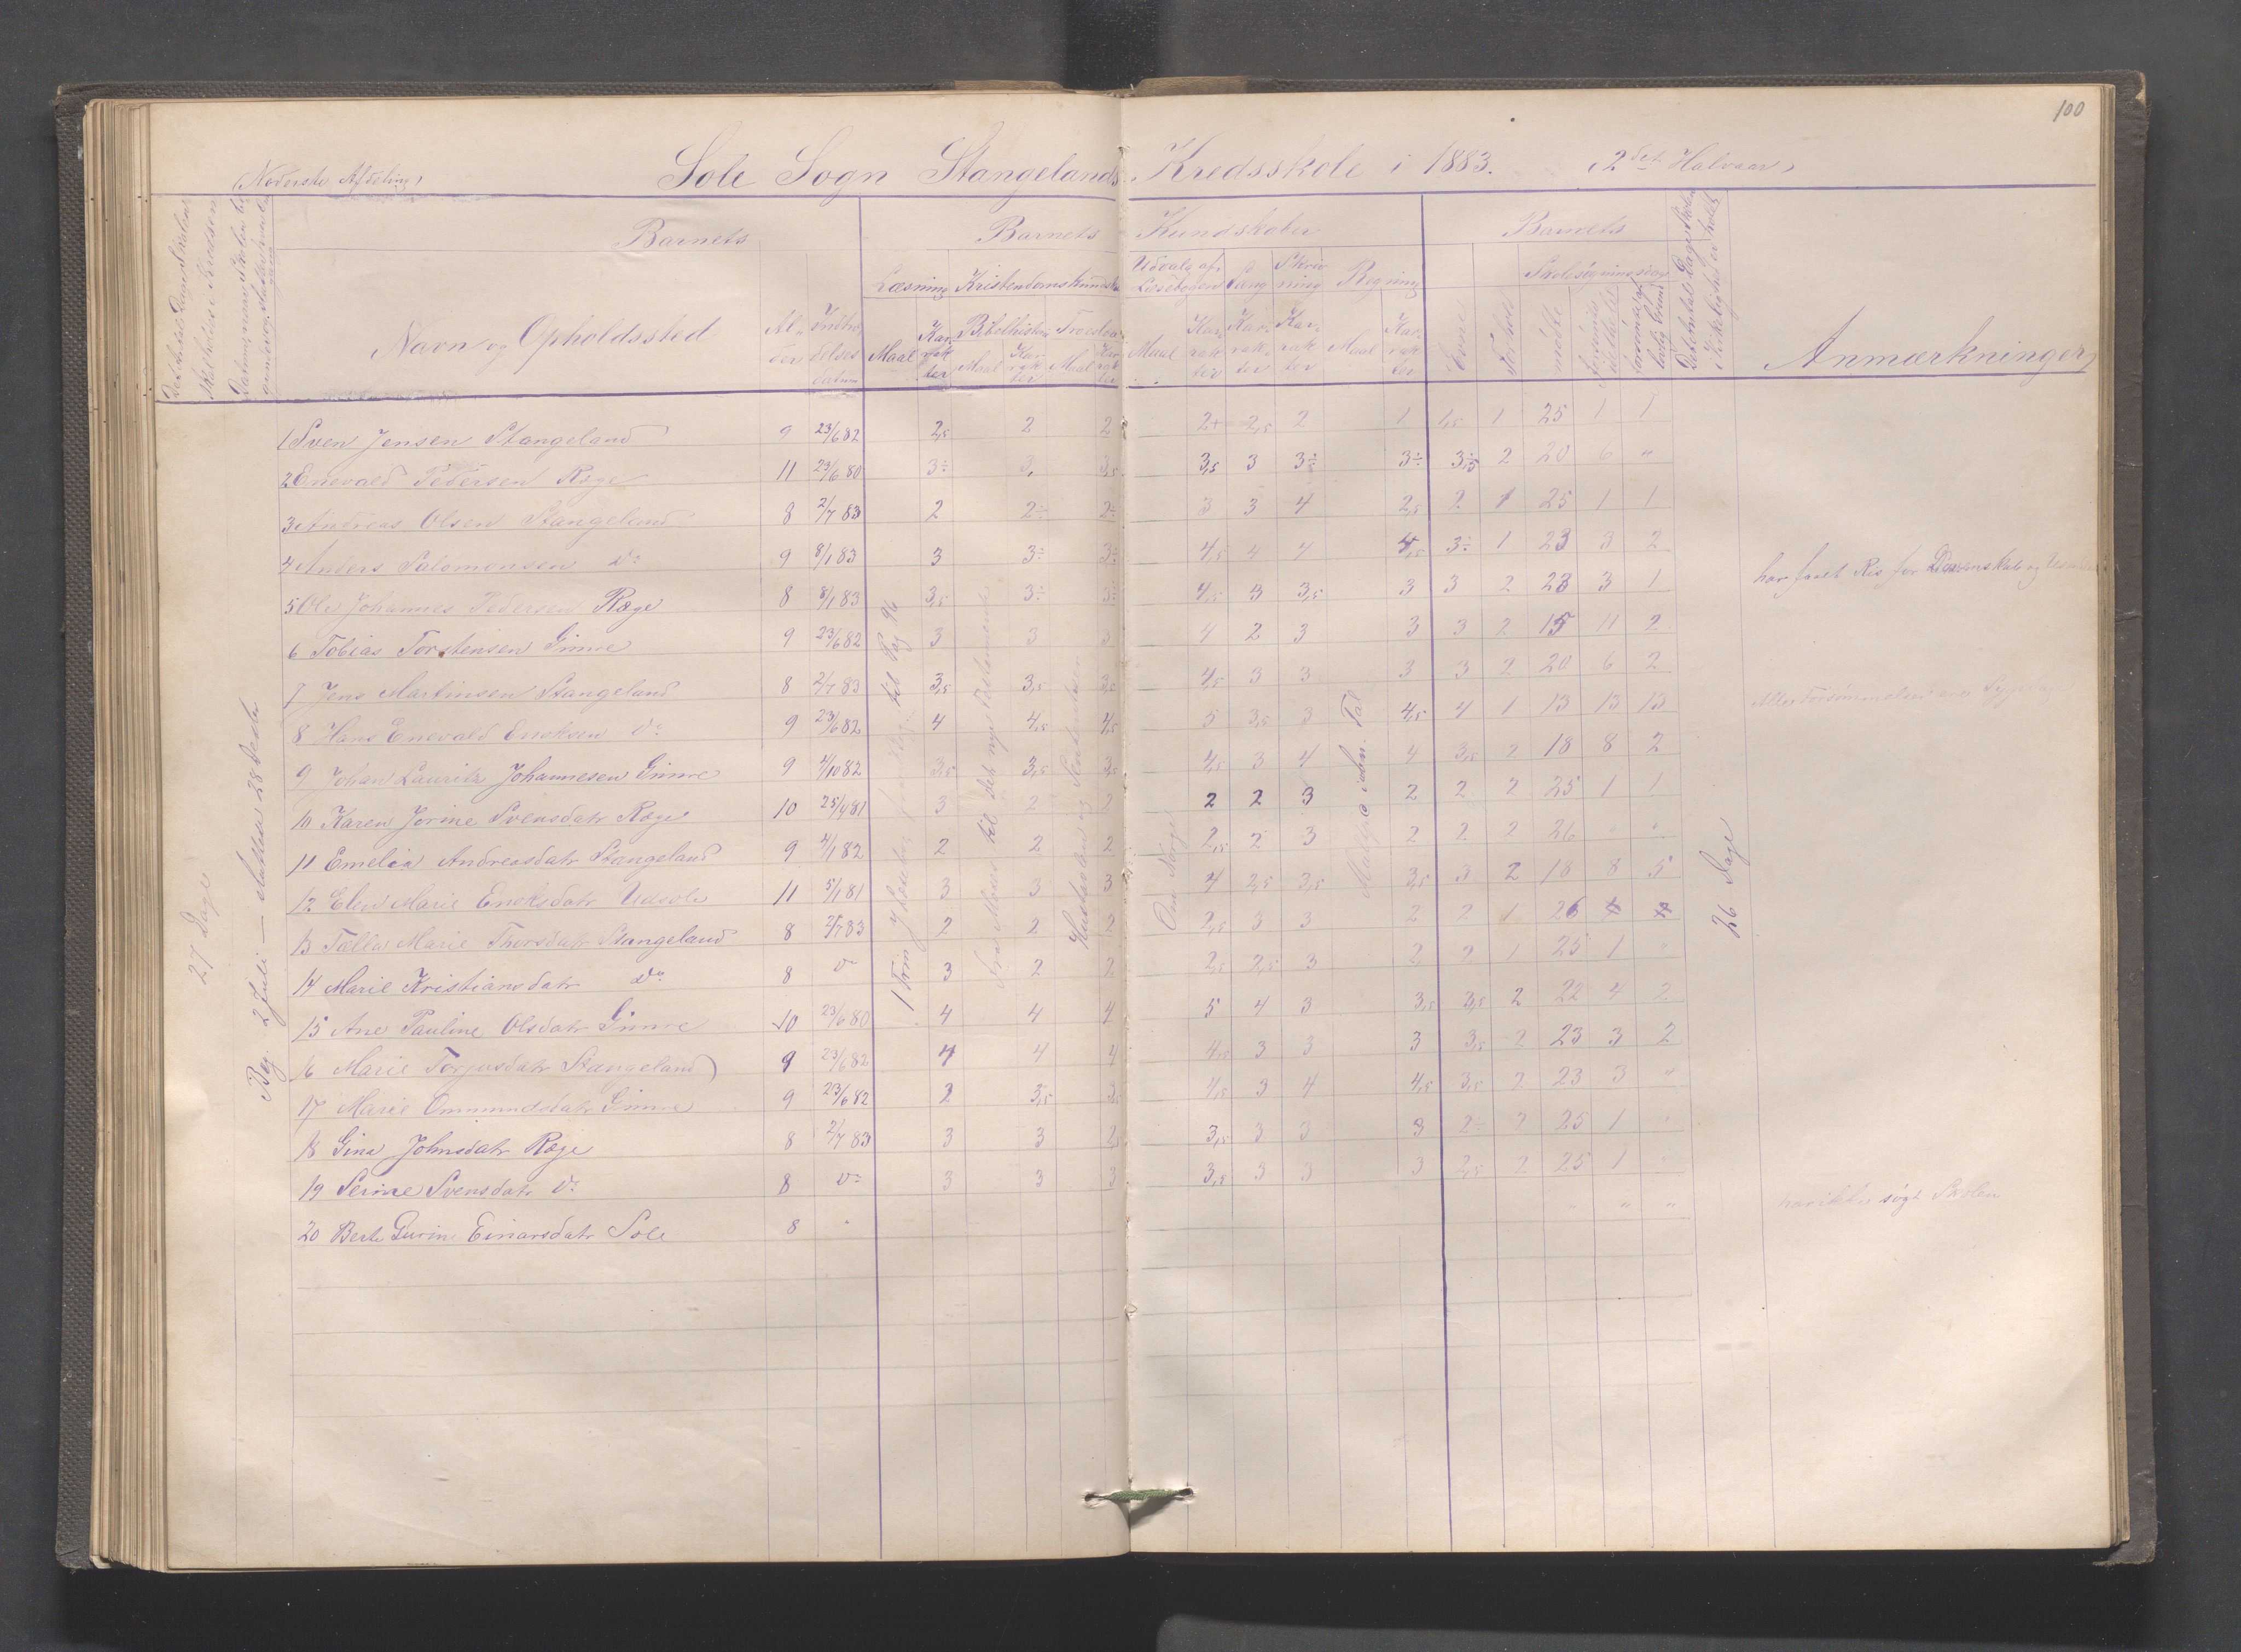 100
(Nederste Afdeling) Sole Sogn Stangelands Kredsskole i 1883. (2det Halvaar)
Barnets Barnets Kundskaber Barnets
Læsning Kristendomskundsk Udvalg af Læsebogen Sang Skrivning Regning Skolesøgningsdage
Navn og Opholdssted Alder Indtrædelsesdatum Maal Karakter Bibelhistorie Maal Karakter Troeslære Maal Karakter Maal Karakter Karakter Karakter Maal Karakter Evne Forhold mødte forsømte Anmærkninger
1 Sven Jensen Stangeland 9 23/6 82 2,5 2 2 2+ 2,5 2 1 1,5 1 25 1 1
2 Enevald Pedersen Ræge 11 23/6 80 3÷ 3, 3,5 3,5 3 3÷ 3÷ 3,5 2 20 6 "
3 Andreas Olsen Stangeland 8 2/7 83 2 2÷ 2÷ 3 3 4 2,5 2 1 25 1 1
4 Anders Salomonsen do 9 8/1 83 3 3÷ 3÷ 4,5 4 4 4,5 3÷ 1 23 3 2 har faaet Ris for
5 Ole Johannes Pedersen Ræge 8 8/1 83 3,5 3÷ 3÷ 4,5 3 3,5 3 3 2 23 3 1
6 Tobias Torstensen Gimre 9 23/6 82 3 3 3 4 2 3 3 3 2 15 11 2
7 Jens Martinsen Stangeland 8 2/7 83 3,5 3,5 3,5 4,5 3 3 3 3 2 20 6 2
8 Hans Enevald Enoksen do 9 23/6 82 4 4,5 4,5 5 3,5 3 4,5 4 1 13 13 13 Alle Forsømmelser
9 Johan Lauritz Johannesen Gimre 9 4/10 82 3,5 3,5 3,5 4,5 3 4 4 3,5 2 18 8 2
10 Karen Jorine Svensdatr Ræge 10 25/4 81 3 2 2 2 2 3 2 2 2 25 1 1
11 Emelia Andreasdatr Stangeland 9 4/1 82 2 2 2 2,5 2 3 2 2 2 26 " "
12 Elen Marie Enoksdatr Udsole 11 5/1 81 3 3 3 4 2,5 3,5 3,5 3 2 18 8 5
13 Tælla Marie Thorsdatr Stangeland 8 2/7 83 2 2 2 2,5 3 3 2 2 1 26
14 Marie Kristiansdatr do 8 do 3 2 2 2,5 2,5 3 2 2 1 25 1 "
15 Ane Pauline Olsdatr Gimre 10 23/6 80 4 4 4 5 4 3 3,5 3,5 2 22 4 2
16 Marie Torjusdatr Stangeland 9 23/6 82 4 4 4 4,5 3 3 3 3,5 2 23 3 2
17 Marie Ommundsdatr Gimre 9 23/6 82 2 3,5 3,5 4,5 3 4 4,5 3,5 2 23 3 "
18 Gina Johnsdatr Ræge 8 2/7 83 3 3 2,5 3,5 3 3 3 2÷ 2 25 1 "
19 Serine Svensdatr do 8 do 3 3 3 3,5 3 3 3 2,5 2 25 1 "
20 Berte Gurine Einarsdatr Sole 8 " " " har ikke søgt Skolen
27 Dage
Beg. 2 Juli – sluttede 28 Decbr
til Pag 96
Fra Moses til det nye Testamente
Hustavlen og
Om Norge
Tal
26 Dage